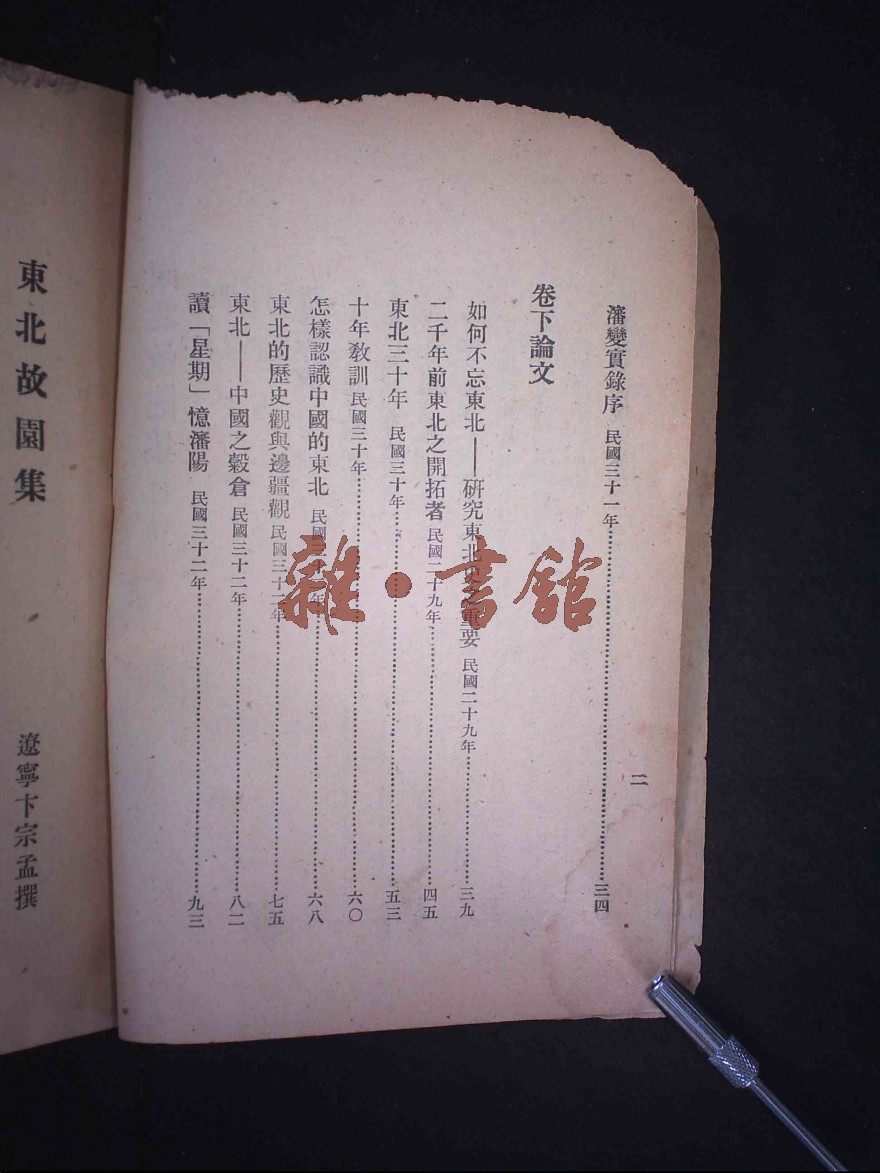 瀋變實錄序 民國三十一年 三四
二
卷下論文
如何不忘東北——研究東北史之重要 民國二十九年 三九
二千年前東北之開拓者 民國二十九年 四五
東北三十年 民國三十年 五三
十年教訓 民國三十年 六〇
怎樣認識中國的東北 民國三十一年 六八
東北的歷史觀與邊疆觀 民國三十二年 七五
東北——中國之穀倉 民國三十二年 八二
讀「星期」憶瀋陽 民國三十二年 九三
東北故園集
遼寧卞宗孟撰
雜·書館